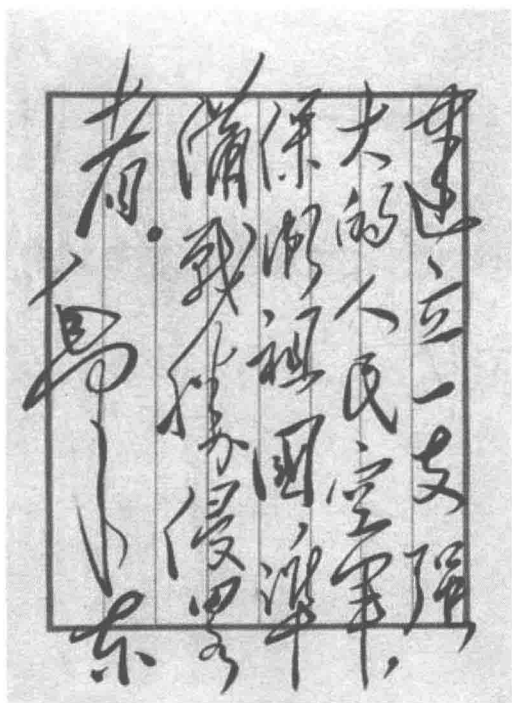 建立一支強
大的人民空軍，
保衛祖國，準
備戰勝侵略
者。
毛澤東